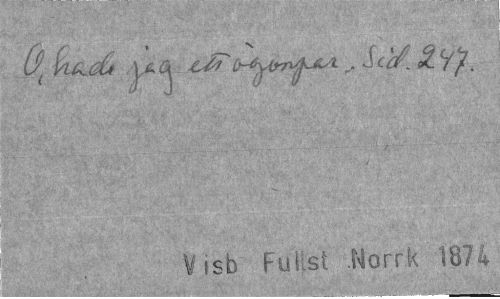 O, hade jag ett ögonpar. Sid. 247.
Visb Fullst Norrk 1874